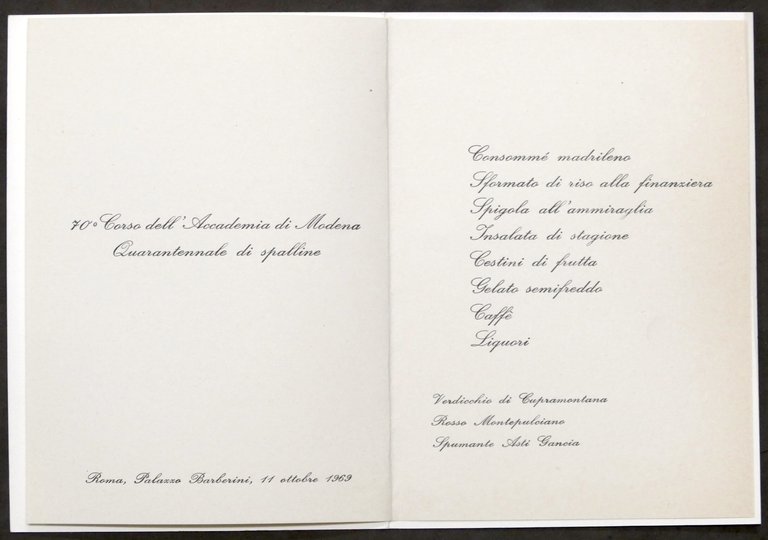 70° Corso dell'Accademia di Modena
Quarantennale di spalline
Roma, Palazzo Barberini, 11 ottobre 1969
Consommé madrileno
Sformato di riso alla finanziera
Spigola all'ammiraglia
Insalata di stagione
Cestini di frutta
Gelato semifreddo
Caffè
Liquori
Verdicchio di Cupramontana
Rosso Montepulciano
Spumante Asti Gancia